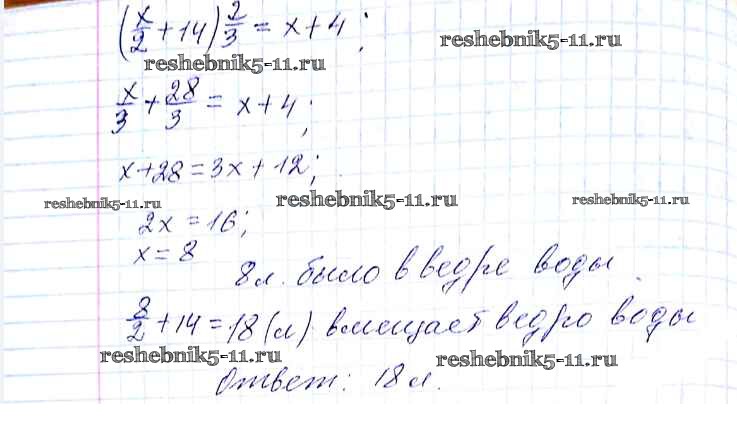 (x/2 + 14) 2/3 = x + 4;
reshebnik5-11.ru
reshebnik5-11.ru
x/3 + 28/3 = x + 4;
x + 28 = 3x + 12;
reshebnik5-11.ru
reshebnik5-11.ru
reshebnik5-11.ru
2x = 16;
x = 8
8л. было в ведре воды
8/2 + 14 = 18 (л) вмещает ведро воды
reshebnik5-11.ru
reshebnik5-11.ru
Ответ: 18 л.